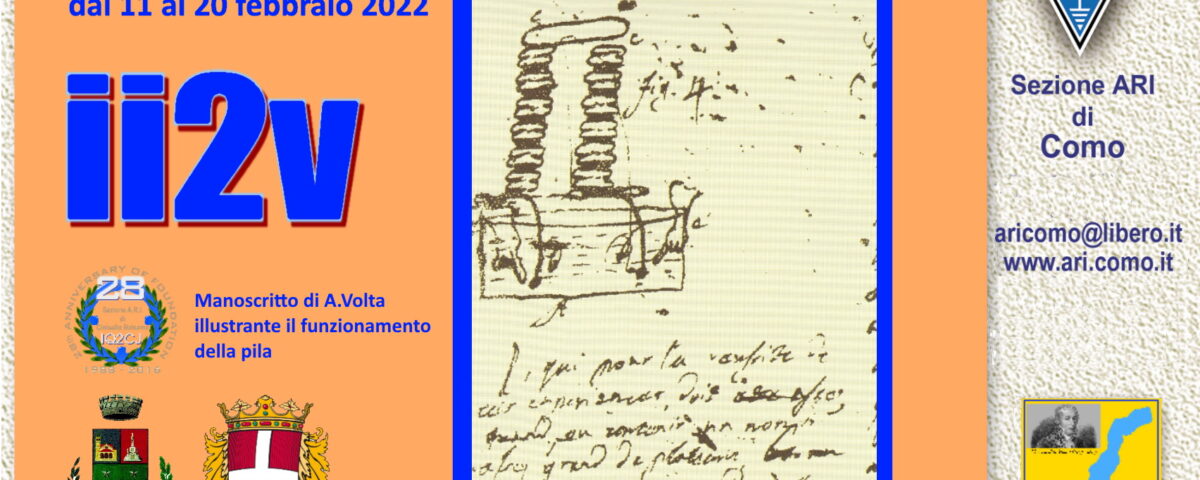 dal 11 al 20 febbraio 2022
ii2v
28
ANNIVERSARY OF FOUNDATION
IQ2CJ
1988 - 2016
Manoscritto di A.Volta
illustrante il funzionamento
della pila
fig. 4.
qui pour la reussite de
ces experiences, dois
grand, en contenir un nomb
assez grand de
Sezione ARI
di
Como
aricomo@libero.it
www.ari.como.it